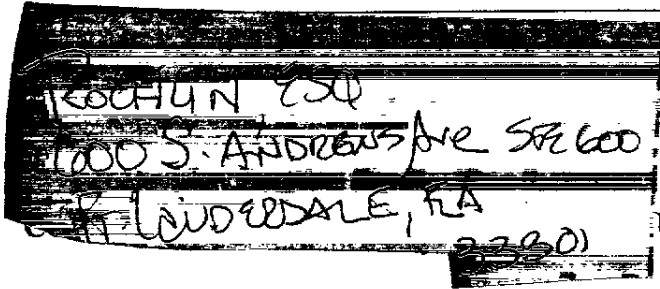 ROCHLIN ESQ.
600 S. ANDREWS Ave STE 600
Ft. LAUDERDALE, FLA
33301